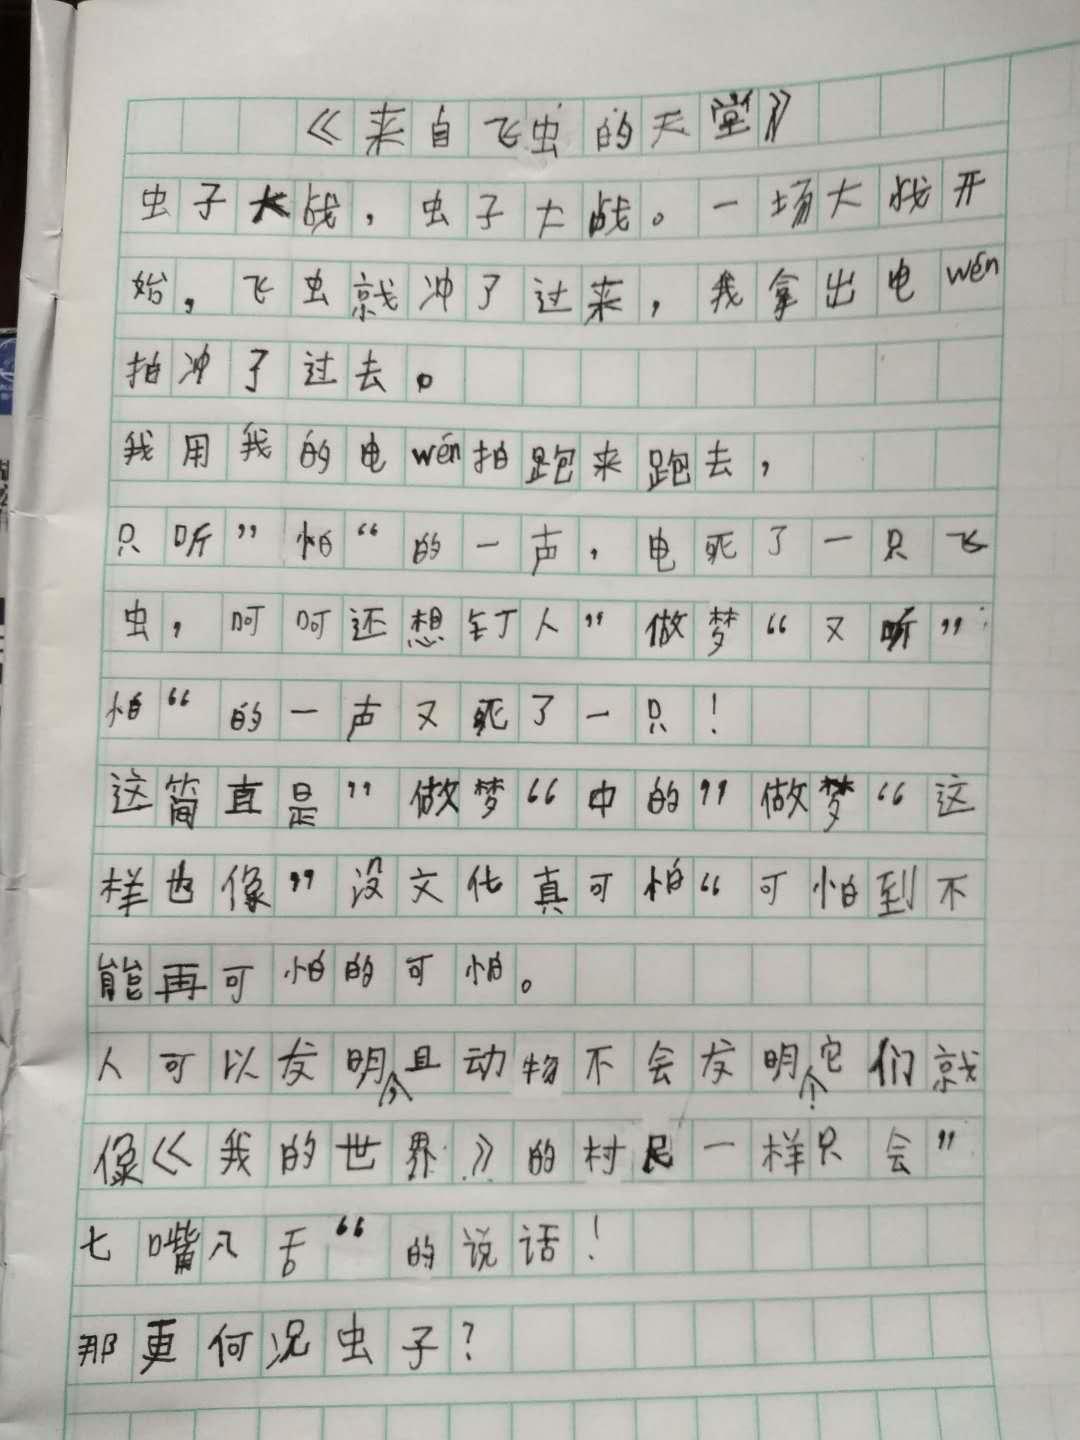 《来自飞虫的天堂》
虫子大战，虫子大战。一场大战开
始，飞虫就冲了过来，我拿出电wén
拍冲了过去。
我用我的电wén拍跑来跑去，
只听”怕“的一声，电死了一只飞
虫，呵呵还想钉人”做梦“又听”
怕“的一声又死了一只！
这简直是”做梦“中的”做梦“这
样也像”没文化真可怕“可怕到不
能再可怕的可怕。
人可以发明，且动物不会发明，它们就
像《我的世界》的村民一样只会”
七嘴八舌“的说话！
那更何况虫子？